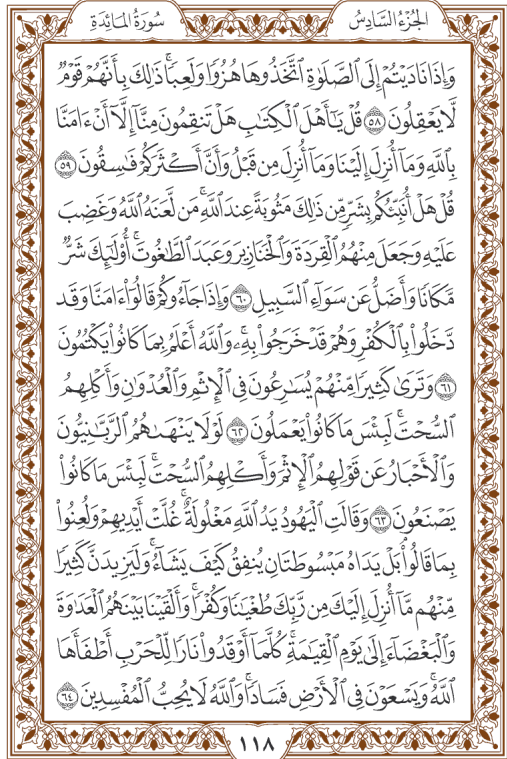 الجُزْءُ السَّادِسُ
سُورَةُ المَائدَةِ
وَإِذَا نَادَيۡتُمۡ إِلَى ٱلصَّلَوٰةِ ٱتَّخَذُوهَا هُزُوٗا وَلَعِبٗاۚ ذَٰلِكَ بِأَنَّهُمۡ قَوۡمٞ
لَّا يَعۡقِلُونَ ٥٨ قُلۡ يَٰٓأَهۡلَ ٱلۡكِتَٰبِ هَلۡ تَنقِمُونَ مِنَّآ إِلَّآ أَنۡ ءَامَنَّا
بِٱللَّهِ وَمَآ أُنزِلَ إِلَيۡنَا وَمَآ أُنزِلَ مِن قَبۡلُ وَأَنَّ أَكۡثَرَكُمۡ فَٰسِقُونَ ٥٩
قُلۡ هَلۡ أُنَبِّئُكُم بِشَرّٖ مِّن ذَٰلِكَ مَثُوبَةً عِندَ ٱللَّهِۚ مَن لَّعَنَهُ ٱللَّهُ وَغَضِبَ
عَلَيۡهِ وَجَعَلَ مِنۡهُمُ ٱلۡقِرَدَةَ وَٱلۡخَنَازِيرَ وَعَبَدَ ٱلطَّٰغُوتَۚ أُوْلَٰٓئِكَ شَرّٞ
مَّكَانٗا وَأَضَلُّ عَن سَوَآءِ ٱلسَّبِيلِ ٦٠ وَإِذَا جَآءُوكُمۡ قَالُوٓاْ ءَامَنَّا وَقَد
دَّخَلُواْ بِٱلۡكُفۡرِ وَهُمۡ قَدۡ خَرَجُواْ بِهِۦۚ وَٱللَّهُ أَعۡلَمُ بِمَا كَانُواْ يَكۡتُمُونَ
٦١ وَتَرَىٰ كَثِيرٗا مِّنۡهُمۡ يُسَٰرِعُونَ فِي ٱلۡإِثۡمِ وَٱلۡعُدۡوَٰنِ وَأَكۡلِهِمُ
ٱلسُّحۡتَۚ لَبِئۡسَ مَا كَانُواْ يَعۡمَلُونَ ٦٢ لَوۡلَا يَنۡهَىٰهُمُ ٱلرَّبَّٰنِيُّونَ
وَٱلۡأَحۡبَارُ عَن قَوۡلِهِمُ ٱلۡإِثۡمَ وَأَكۡلِهِمُ ٱلسُّحۡتَۚ لَبِئۡسَ مَا كَانُواْ
يَصۡنَعُونَ ٦٣ وَقَالَتِ ٱلۡيَهُودُ يَدُ ٱللَّهِ مَغۡلُولَةٌۚ غُلَّتۡ أَيۡدِيهِمۡ وَلُعِنُواْ
بِمَا قَالُواْۘ بَلۡ يَدَاهُ مَبۡسُوطَتَانِ يُنفِقُ كَيۡفَ يَشَآءُۚ وَلَيَزِيدَنَّ كَثِيرٗا
مِّنۡهُم مَّآ أُنزِلَ إِلَيۡكَ مِن رَّبِّكَ طُغۡيَٰنٗا وَكُفۡرٗاۚ وَأَلۡقَيۡنَا بَيۡنَهُمُ ٱلۡعَدَٰوَةَ
وَٱلۡبَغۡضَآءَ إِلَىٰ يَوۡمِ ٱلۡقِيَٰمَةِۚ كُلَّمَآ أَوۡقَدُواْ نَارٗا لِّلۡحَرۡبِ أَطۡفَأَهَا
ٱللَّهُۚ وَيَسۡعَوۡنَ فِي ٱلۡأَرۡضِ فَسَادٗاۚ وَٱللَّهُ لَا يُحِبُّ ٱلۡمُفۡسِدِينَ ٦٤
١١٨